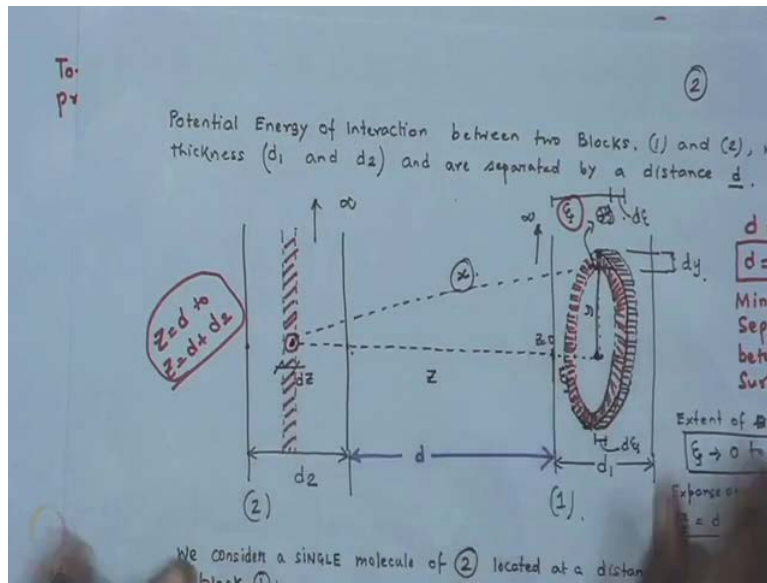 To
pr
②
Potential Energy of Interaction between two Blocks. (1) and (2),
thickness (d₁ and d₂) and are separated by a distance d.
∞
∞
ξ
dξ
x
dy
d
d =
Min
Sep
betw
Sur
Z=d to
Z=d+d₂
Z=0
dZ
Z
dξ
Extent of
ξ → 0 to
d₂
d
d₁
= d
(2)
(1).
We consider a SINGLE molecule of ② located at a distan
block ①